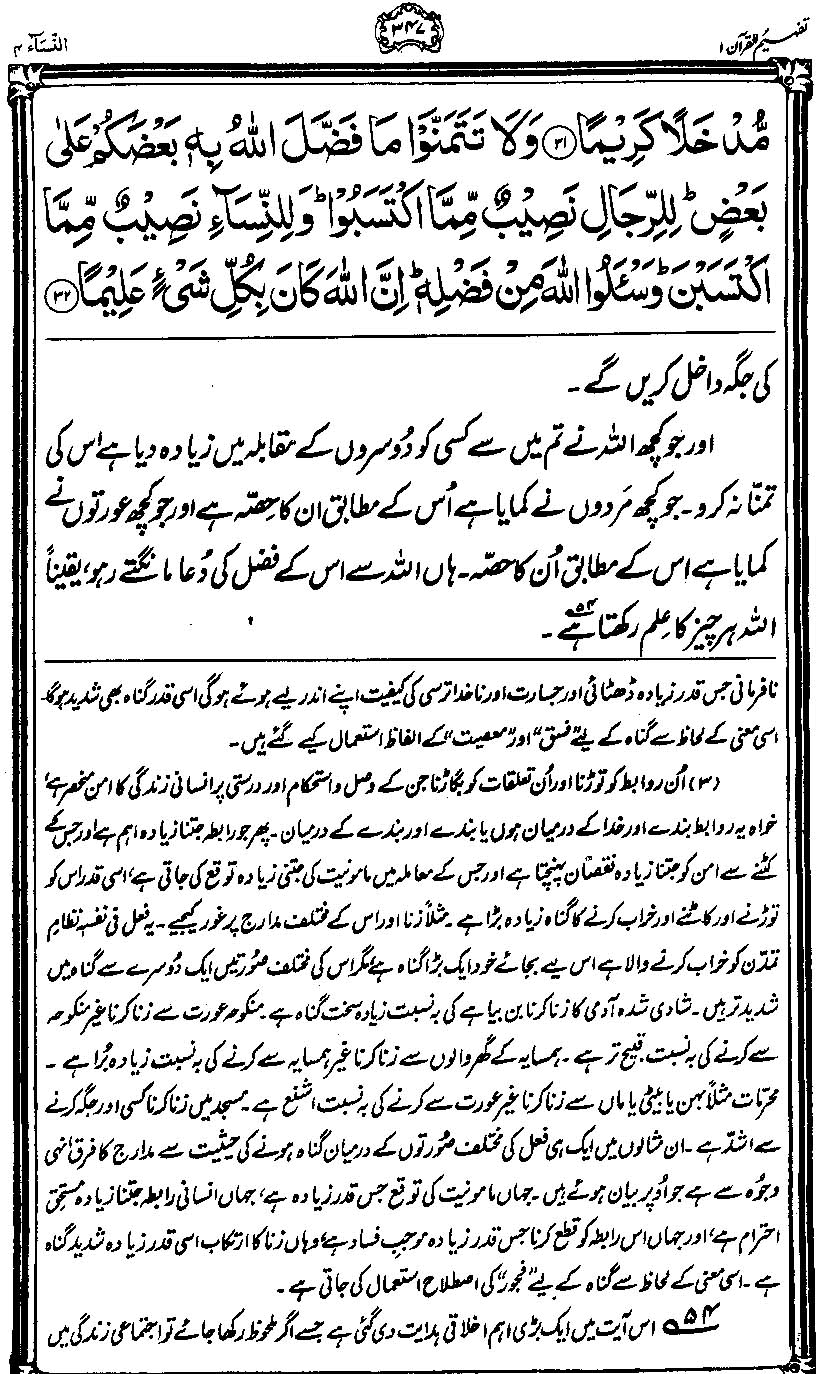 تفہیم القرآن ۱
۳۴۷
النساء ۴
مُّدْخَلًا كَرِيْمًا ﴿۳۱﴾ وَلَا تَتَمَنَّوْا مَا فَضَّلَ اللّٰهُ بِهٖ بَعْضَكُمْ عَلٰى
بَعْضٍ ؕ لِلرِّجَالِ نَصِيْبٌ مِّمَّا اكْتَسَبُوْا ؕ وَلِلنِّسَآءِ نَصِيْبٌ مِّمَّا
اكْتَسَبْنَ ؕ وَسْـَٔلُوا اللّٰهَ مِنْ فَضْلِهٖ ؕ اِنَّ اللّٰهَ كَانَ بِكُلِّ شَىْءٍ عَلِيْمًا ﴿۳۲﴾
کی جگہ داخل کریں گے۔
اور جو کچھ اللہ نے تم میں سے کسی کو دُوسروں کے مقابلہ میں زیادہ دیا ہے اس کی
تمنّا نہ کرو۔ جو کچھ مَردوں نے کمایا ہے اُس کے مطابق ان کا حِصّہ ہے اور جو کچھ عورتوں نے
کمایا ہے اس کے مطابق اُن کا حصّہ۔ ہاں اللہ سے اس کے فضل کی دُعا مانگتے رہو، یقیناً
اللہ ہر چیز کا عِلم رکھتا ہے ۵۴۔
نافرمانی جس قدر زیادہ ڈھٹائی اور جسارت اور ناخدا ترسی کی کیفیت اپنے اندر لیے ہوئے ہوگی اسی قدر گناہ بھی شدید ہوگا۔
اسی معنی کے لحاظ سے گناہ کے لیے ”فسق“ اور ”معصیت“ کے الفاظ استعمال کیے گئے ہیں۔
(۳) اُن روابط کو توڑنا اور اُن تعلقات کو بگاڑنا جن کے وصل و استحکام اور درستی پر انسانی زندگی کا امن منحصر ہے،
خواہ یہ روابط بندے اور خدا کے درمیان ہوں یا بندے اور بندے کے درمیان۔ پھر جو رابطہ جتنا زیادہ اہم ہے اور جس کے
کٹنے سے امن کو جتنا زیادہ نقصان پہنچتا ہے اور جس کے معاملہ میں مامونیت کی جتنی زیادہ توقع کی جاتی ہے، اسی قدر اس کو
توڑنے اور کاٹنے اور خراب کرنے کا گناہ زیادہ بڑا ہے۔ مثلاً زنا اور اس کے مختلف مدارج پر غور کیجیے۔ یہ فعل فی نفسہٖ نظامِ
تمدّن کو خراب کرنے والا ہے اس لیے بجائے خود ایک بڑا گناہ ہے، مگر اس کی مختلف صُورتیں ایک دُوسرے سے گناہ میں
شدید تر ہیں۔ شادی شدہ آدمی کا زنا کرنا بن بیاہے کی بہ نسبت زیادہ سخت گناہ ہے۔ منکوحہ عورت سے زنا کرنا غیر منکوحہ
سے کرنے کی بہ نسبت قبیح تر ہے۔ ہمسایہ کے گھر والوں سے زنا کرنا غیر ہمسایہ سے کرنے کی بہ نسبت زیادہ بُرا ہے۔
محرّمات مثلاً بہن یا بیٹی یا ماں سے زنا کرنا غیر عورت سے کرنے کی بہ نسبت اشنع ہے۔ مسجد میں زنا کرنا کسی اور جگہ کرنے
سے اشدّ ہے۔ ان مثالوں میں ایک ہی فعل کی مختلف صُورتوں کے درمیان گناہ ہونے کی حیثیت سے مدارج کا فرق انہی
وجوہ سے ہے جو اُوپر بیان ہوئے ہیں۔ جہاں مامونیت کی توقع جس قدر زیادہ ہے، جہاں انسانی رابطہ جتنا زیادہ مستحقِ
احترام ہے، اور جہاں اس رابطہ کو قطع کرنا جس قدر زیادہ موجبِ فساد ہے، وہاں زنا کا ارتکاب اسی قدر زیادہ شدید گناہ
ہے۔ اسی معنی کے لحاظ سے گناہ کے لیے ”فجور“ کی اصطلاح استعمال کی جاتی ہے۔
۵۴ اس آیت میں ایک بڑی اہم اخلاقی ہدایت دی گئی ہے جسے اگر ملحوظ رکھا جائے تو اجتماعی زندگی میں